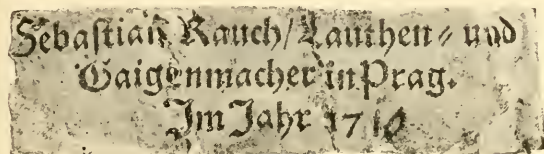 Sebastian Rauch/Lauthen⸗ und
Gaigenmacher in Prag.
Im Jahr 1710